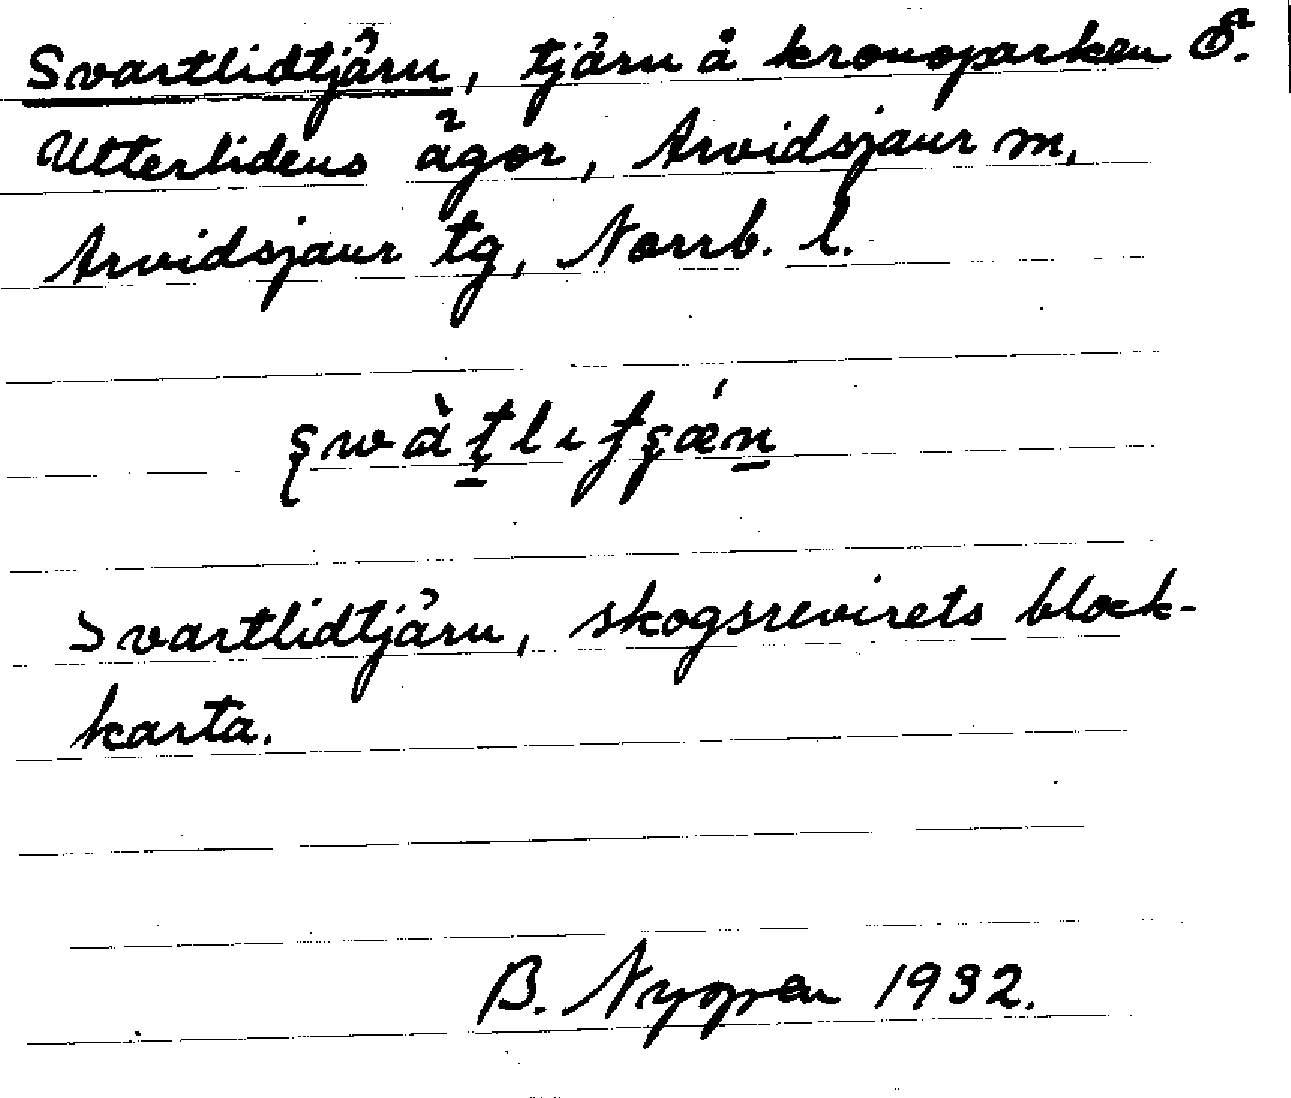 Svartlidtjärn, tjärn å kronoparken Ö.
Utterlidens ägor, Arvidsjaur m,
Arvidsjaur tg, Norrb. l.
Svartlidtjärn, skogsrevirets block-
karta.
B. Nygren 1932.